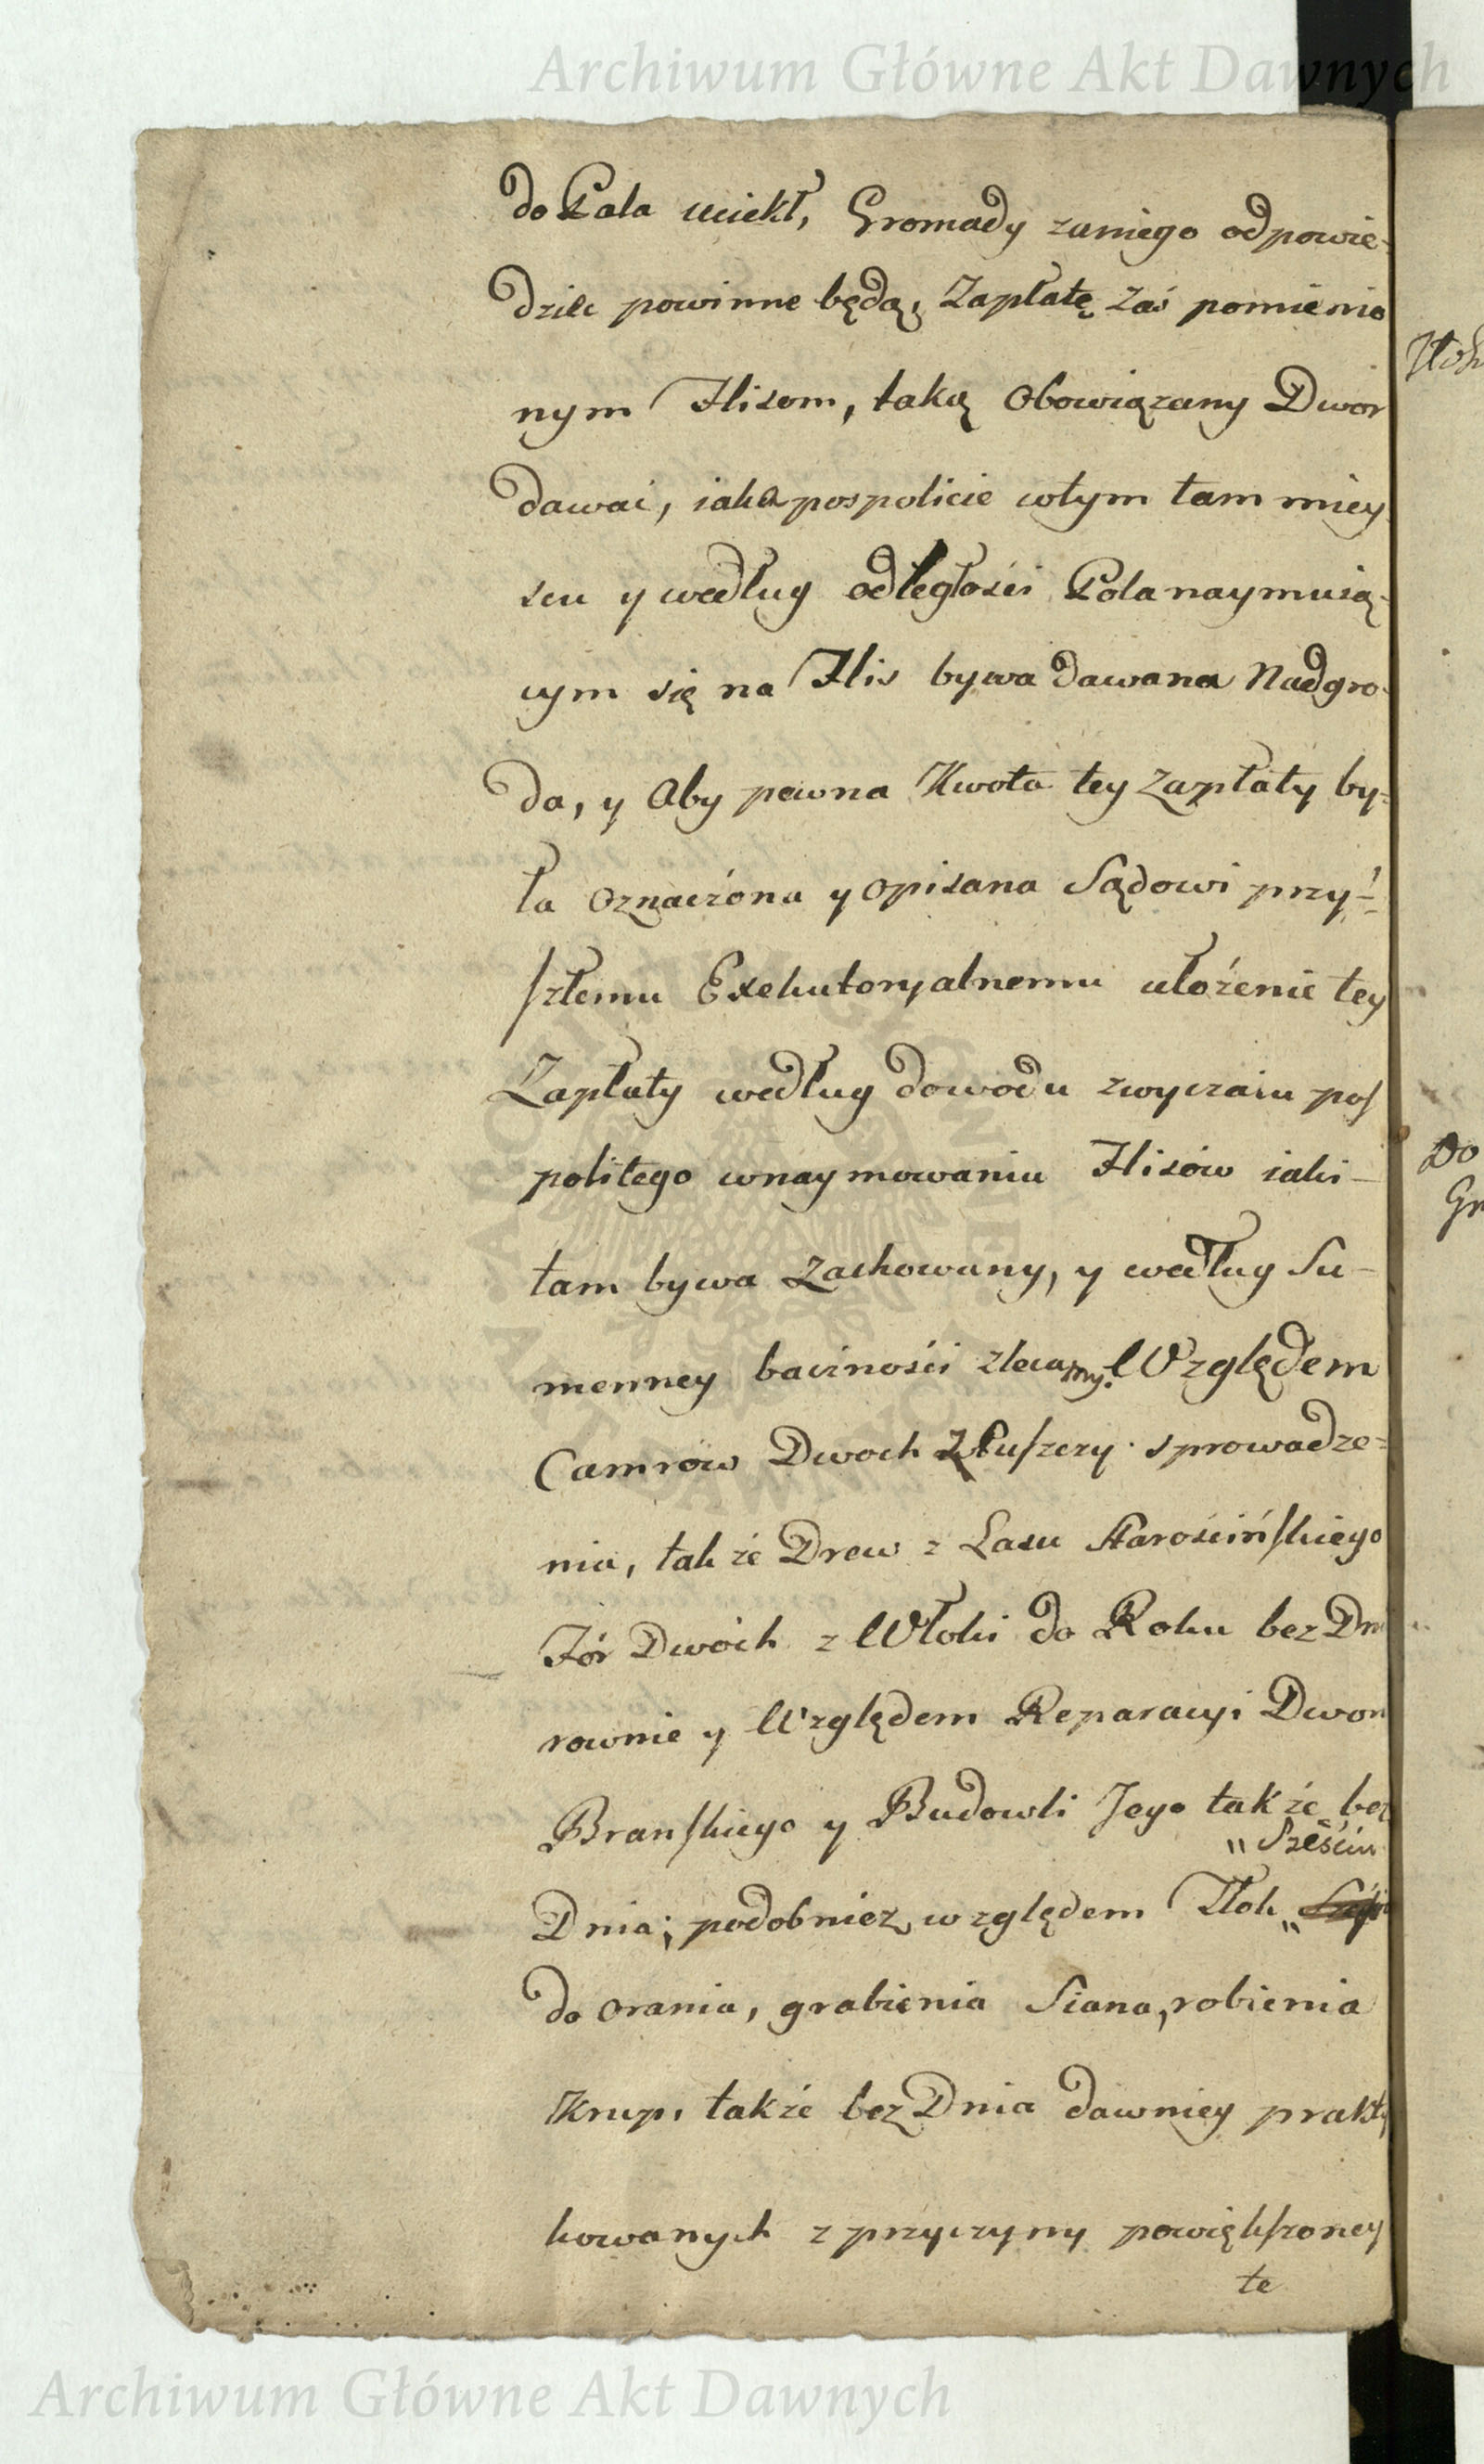 Archiwum Główne Akt Dawnych
do Pala uciekł, Gromady zaniego odpowie-
dziec powinne będą, Zapłatę zaś pomienio
nym Flisom, taką Obowiązany Dwor
dawać, iaka pospolicie wtym tam miey
scu y według odległości Pola naymuią-
cym się na Flis bywa dawana Nadgro-
da, y Aby pewna Kwota tey Zapłaty by-
ła Oznaczóna y opisana Sądowi przy-
szłemu Exekutoryalnemu ułożenie tey
Zapłaty według dowodu zwyczaiu pos
politego wnaymowaniu Flisów iaki-
tam bywa Zachowany, y według Su-
menney bacżności zlecamy. Względem
Camrow Dwoch z Puszczy sprowadze-
nia, także Drew z Lasu Starościńskiego
Fór Dwóch z Włoki do Roku bez Dni
rownie y Względem Reparacyi Dwor
Branskiego y Budowli Jego także bez
" Sześciu
Dnia; podobniez względem Tłok "
do orania, grabienia Siana, robienia
Krup, także bez Dnia dawniey prakty
kowanych z przyczyny powiększoney
te
Do
Gr
Archiwum Główne Akt Dawnych